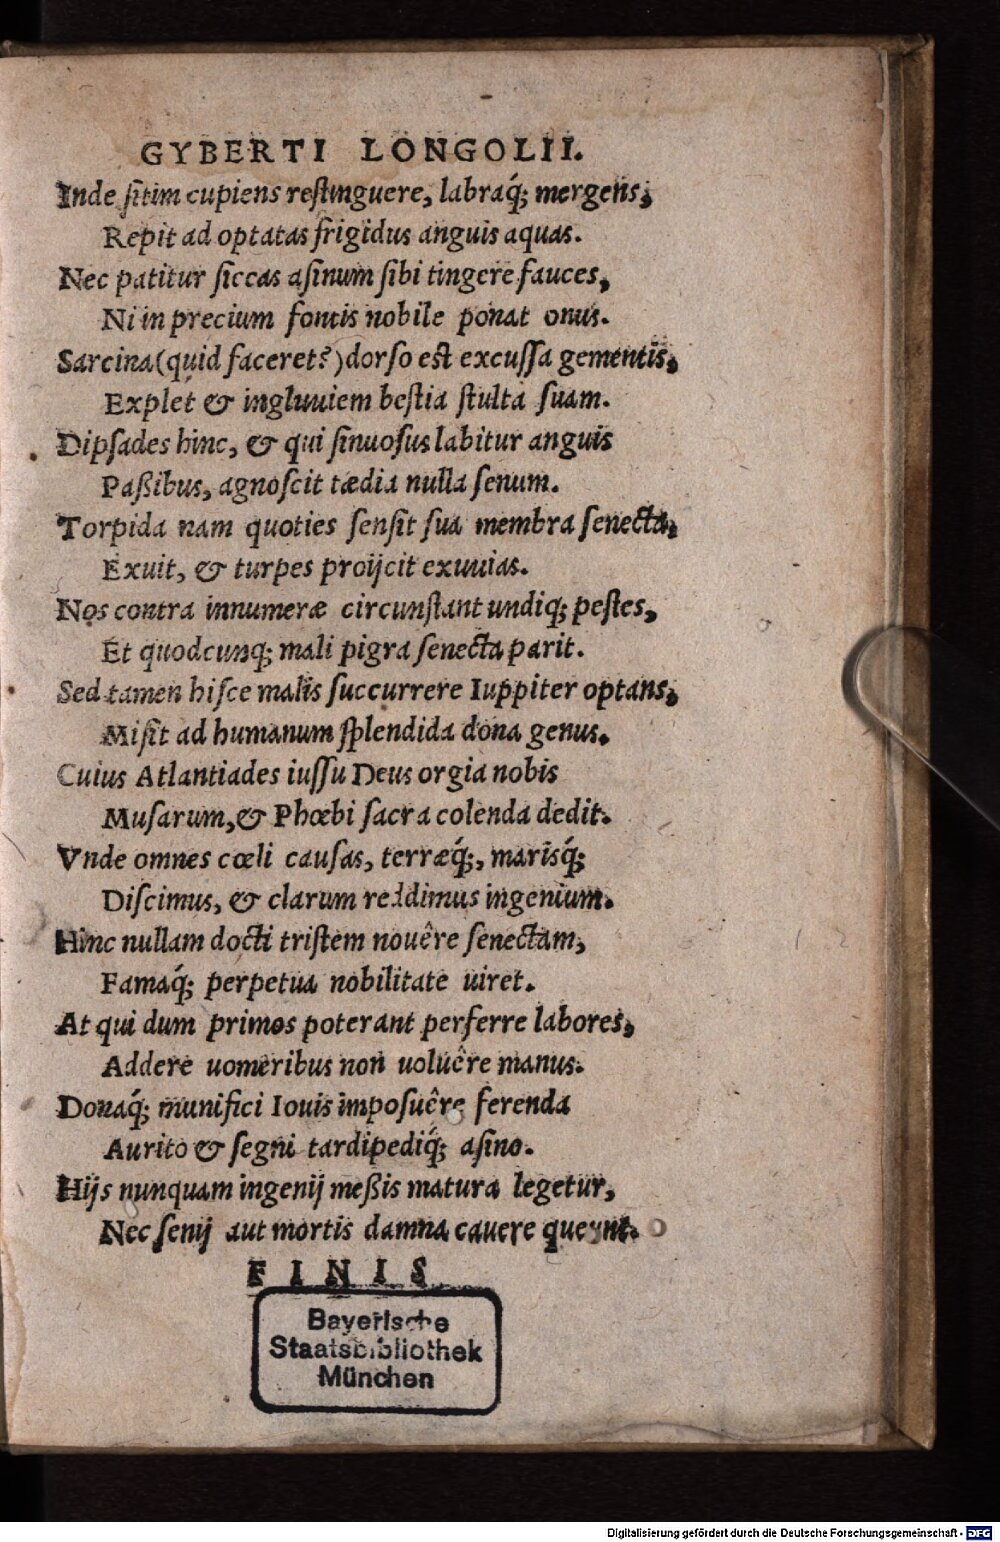 GYBERTI LONGOLII.
Inde ſitim cupiens reſtinguere, labraq́; mergens,
Repit ad optatas frigidus anguis aquas.
Nec patitur ſiccas aſinum ſibi tingere fauces,
Ni in precium fontis nobile ponat onus.
Sarcina (quid faceret?) dorſo est excuſſa gementis,
Explet & ingluuiem beſtia ſtulta ſuam.
Dipſades hinc, & qui ſinuoſus labitur anguis
Paßibus, agnoſcit tædia nulla ſenum.
Torpida nam quoties ſenſit ſua membra ſenecta,
Exuit, & turpes proijcit exuuias.
Nos contra innumeræ circunſtant undiq; peſtes,
Et quodcunq; mali pigra ſenecta parit.
Sed tamen hiſce malis ſuccurrere Iuppiter optans,
Miſit ad humanum ſplendida dona genus.
Cuius Atlantiades iuſſu Deus orgia nobis
Muſarum, & Phœbi ſacra colenda dedit.
Vnde omnes cœli cauſas, terræq́;, marisq́;
Diſcimus, & clarum reddimus ingenium.
Hinc nullam docti triſtem nouêre ſenectam,
Famaq́; perpetua nobilitate uiret.
At qui dum primos poterant perferre labores,
Addere uomeribus non uoluêre manus.
Donaq́; munifici Iouis impoſuêre ferenda
Aurito & ſegni tardipediq́; aſino.
Hijs nunquam ingenij meßis matura legetur,
Nec ſenij aut mortis damna cauere queunt.
FINIS
Bayerische
Staatsbibliothek
München
Digitalisierung gefördert durch die Deutsche Forschungsgemeinschaft - DFG